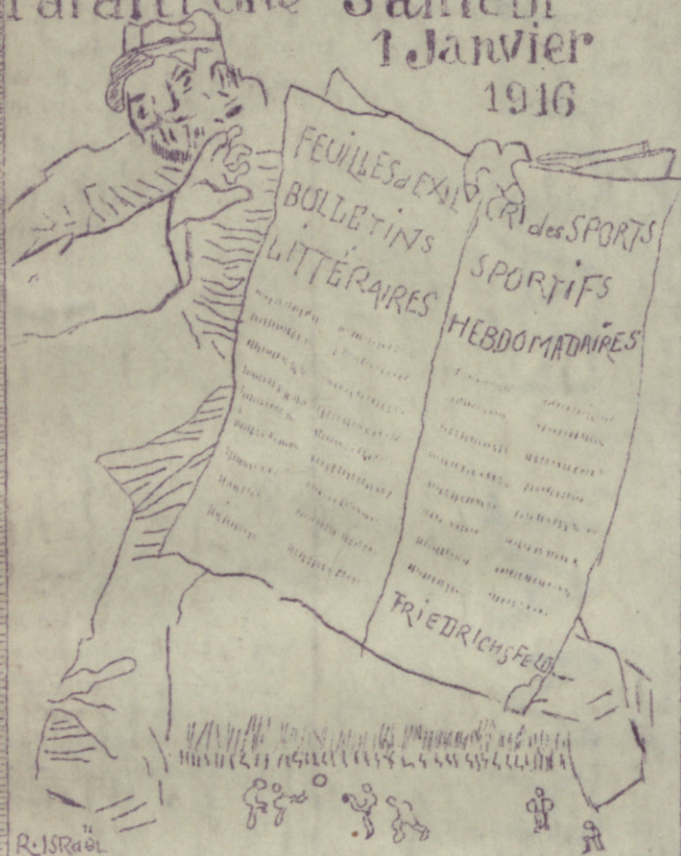 Paraîtront Samedi
1 Janvier
1916
FEUILLES d'EXIL
BULLETINS
LITTÉRAIRES
CRI des SPORTS
SPORTIFS
HEBDOMADAIRES
FRIEDRICHSFELD
R. ISRAËL